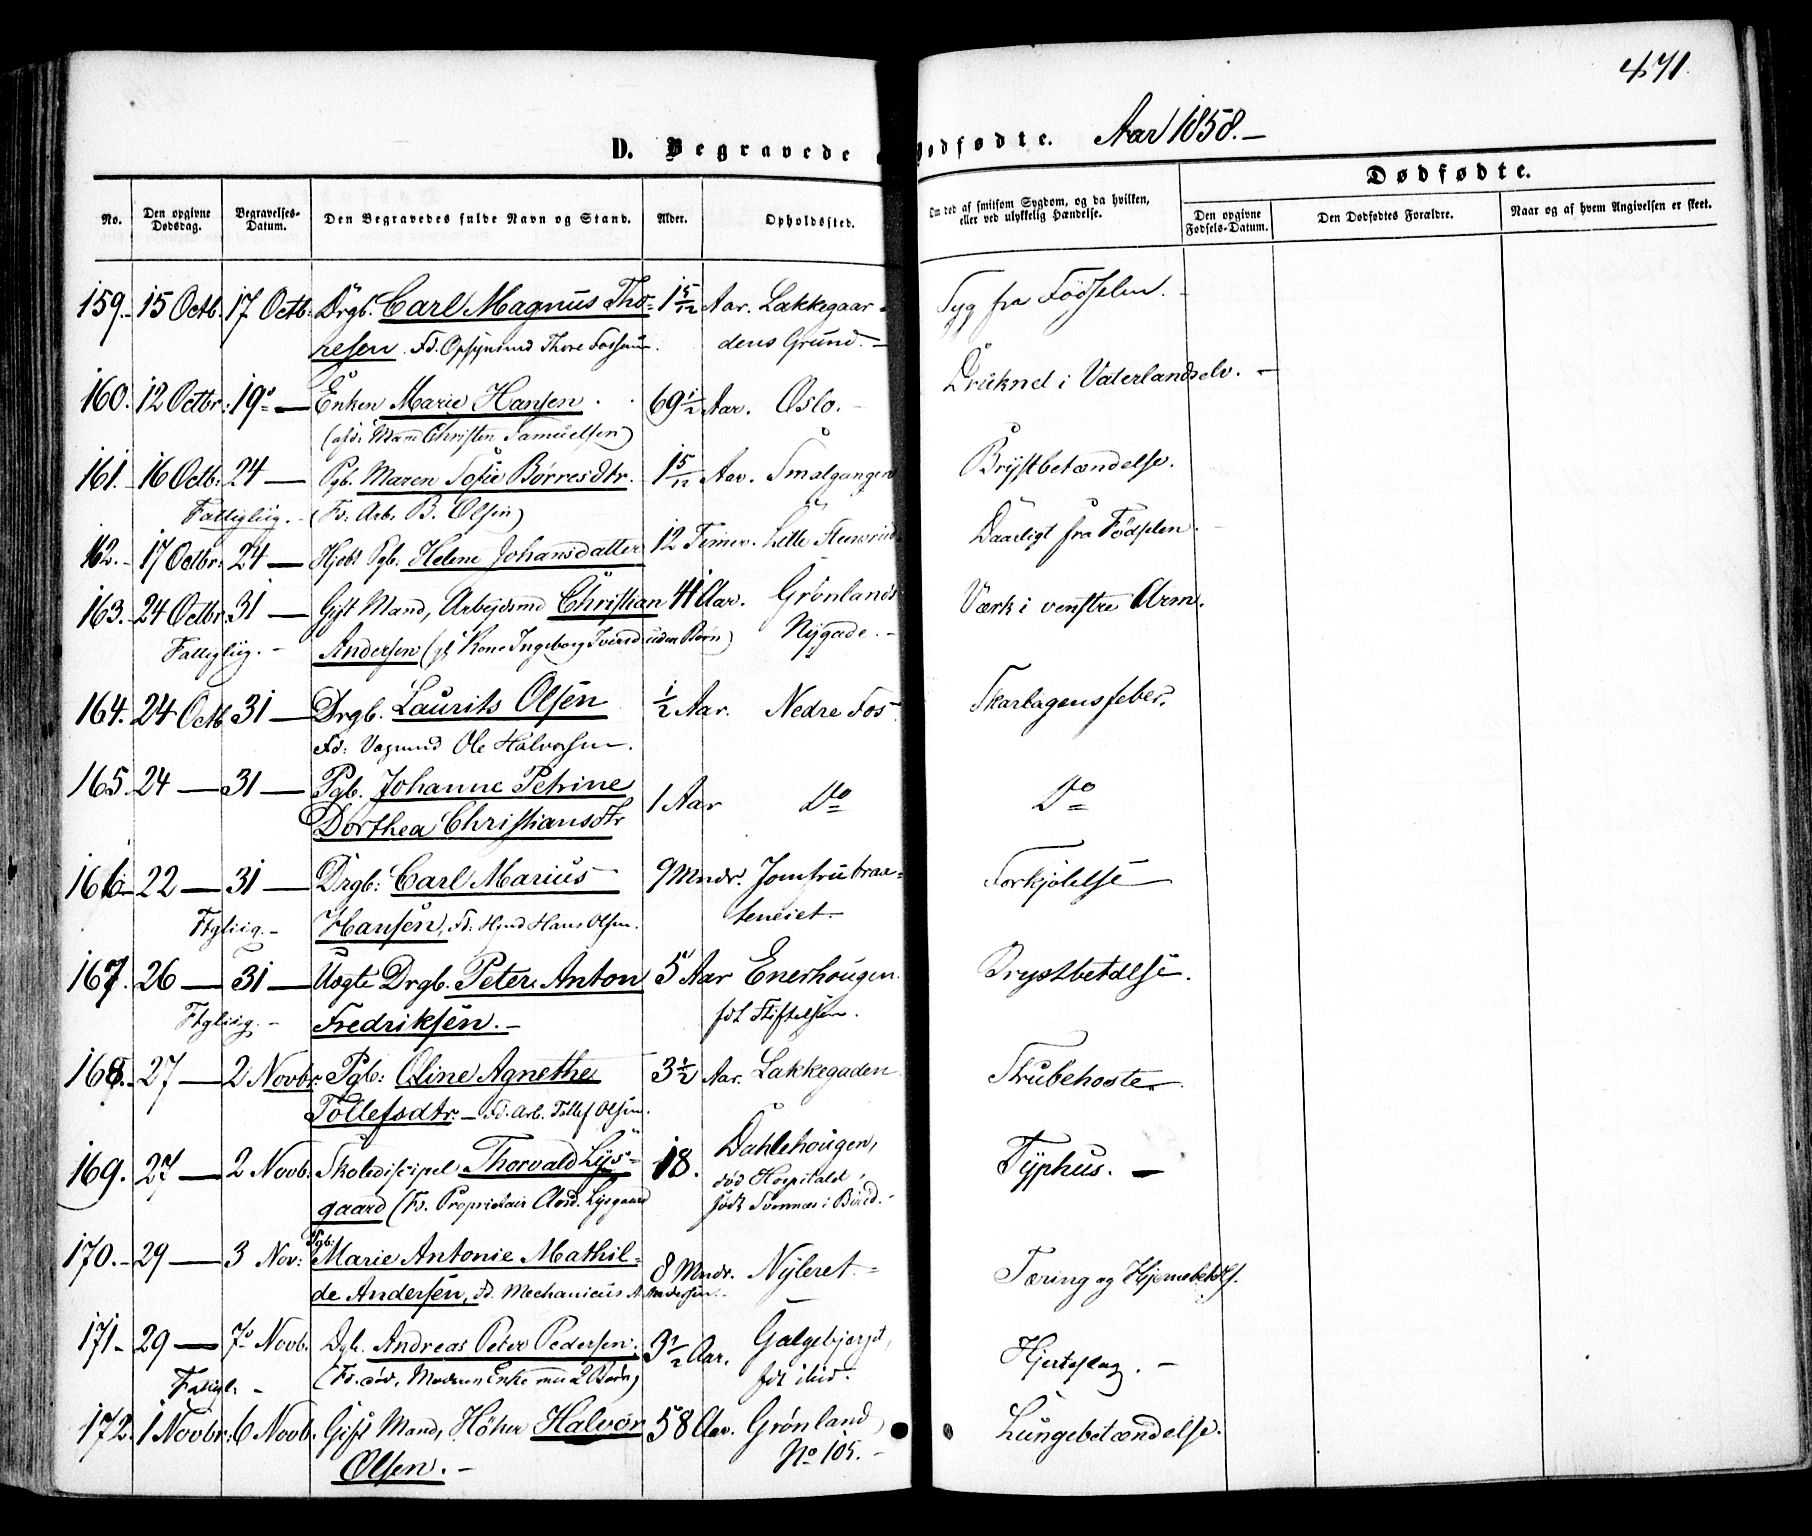 471.
D. Begravede o Dødfødte. Aar 1858.-
Dødfødte.
No. Den opgivne Dødsdag. Begravelses-Datum. Den Begravedes fulde Navn og Stand. Alder. Opholdssted. Om død af smitsom Sygdom, og da hvilken, eller ved ulykkelig Hændelse. Den opgivne Fødsels-Datum. Den Dødfødtes Forældre. Naar og af hvem Angivelsen er skeet.
159.- 15 Octb. 17 Octb: Drgb. Carl Magnus Tho- 1 5/12 Aar. Lakkegaar- Syg fra Fødselen.-
resen. Fd. Opsynsmd Thore Fossum. dens Grund.-
160. 12 Octbr: 19 — Enken Marie Hansen. 69 1/2 Aar. Oslo.- Druknet i Vaterlandselv.-
(afd: Mand Christen Samuelsen)
161. 16 Octb: 24 — Pgb. Maren Sofie Børresdtr. 1 5/12 Aar. Smalgangen Brystbetændelse.
Fattigliig.- (Fd: Arb. B. Olsen)
162.- 17 Octbr: 24 — Hjdbt Pgb. Helene Johansdatter 12 Timer. Lille Steensrud Daarligt fra Fødselen.
163.- 24 Octbr: 31 — Gift Mand, Arbejdsmd Christian 41 Aar. Grønlands Værk i venstre Arm.
Fattigliig.- Andersen (gl Kone Ingeborg Iversd uden Børn) Nygade.-
164. 24 Octb 31 — Drgb. Laurits Olsen 1/2 Aar. Nedre Fos Skarlagensfeber.
Fd: Vognmd Ole Halvorsen.
165. 24 — 31 — Pgb. Johanne Petrine 1 Aar Do Do
Dorthea Christiansdtr
166- 22 — 31 — Drgb: Carl Marius 9 Mndr. Jomfrubraa- Forkjølelse
Ftgliig.- Hansen, Fd. Hsmd Hans Olsen. teneiet-
167. 26 — 31 — Uægte Drgb. Peter Anton 5 Aar Enerhougen. Brystbetdlse.
Ftgliig.- Fredriksen.- fdt Stiftelsen.
168.- 27 — 2 Novbr: Pgb: Oline Agnethe 3 1/2 Aar. Lakkegaden. Strubehoste.
Tollefsdtr.- Fd. Arb. Tollef Olsen.
169. 27 — 2 Novb. Skoledisipel Thorvald Lys- 18. Dahlehougen, Typhus.-
gaard (Fd. Proprietair Lysgaard død Hospitalet, født Svennæs i Birid.-
170.- 29 — 3 Nov: Pgb: Marie Antonie Mathil- 8 Mndr. Nyleret.- Tæring og Hjernebetdls.
de Andersen, Fd. Mechanicus A Andersen.-
171- 29 — 7 Novb. Dgb. Andreas Peter Pedersen: 3 1/2 Aar. Galgebjerget, Hjerteslag.-
Fattigl.- (Fd. død, Moderen Enke med 2 Børn) fdt ibid.
172. 1 Novbr: 6 Novb. Gift Mand, Höker Halvor 58 Aar. Grønland Lungebetændelse.
Olsen.- No 105.-